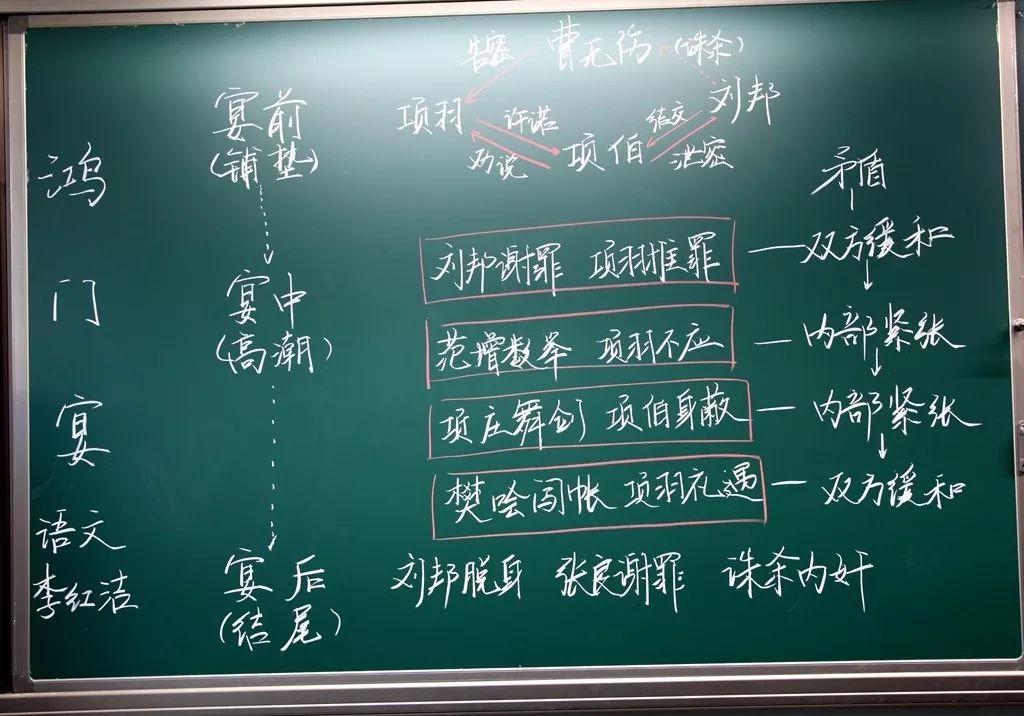 鸿门宴
语文
李红洁
宴前
(铺垫)
宴中
(高潮)
宴后
(结尾)
告密 曹无伤 (诛杀)
项羽 许诺 结交 刘邦
劝说 项伯 泄密
矛盾
刘邦谢罪 项羽推罪 — 双方缓和
范增数举 项羽不应 — 内部紧张
项庄舞剑 项伯身蔽 — 内部紧张
樊哙闯帐 项羽礼遇 — 双方缓和
刘邦脱身 张良谢罪 诛杀内奸